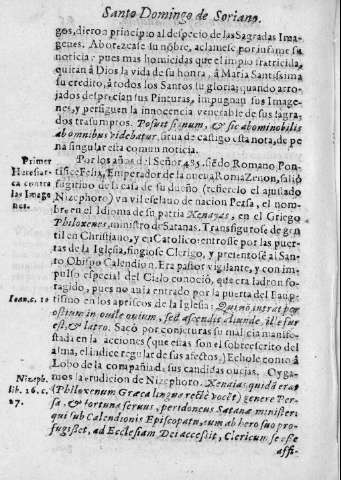 Santo Domingo de Soriano.
gos, dieron principio al despecio de las Sagradas Ima-
genes. Aborrezcase su nõbre, aclamese por infame su
noticia: pues mas homicidas que el impio fratricida,
quitan à Dios la vida de su honra, à Maria Santissima
su credito, à todos los Santos su gloria; quando arro-
jados desprecian sus Pinturas, impugnan sus Image-
nes, y persiguen la innocencia venerable de sus sagra-
dos trasumptos. Posuit signum, & sic abominabilis
ab omnibus videbatur. sirua de castigo esta nota, de pe
na singular esta comun noticia.
Primer
Heresiar-
ca contra
las Image
nes.
Por los años del Señor 485. siẽdo Romano Pon-
tifice Felix, Emperador de la nueva Roma Zenon, saliò
fugitivo de la casa de su dueño (refierelo el ajustado
Nizephoro) vn vil esclauo de nacion Persa, el nom-
bre en el Idioma de su patria Xenayas, en el Griego
Philoxenes, ministro de Satanas. Transfigurose de gen
til en Christiano, y en Catolico: entrosse por las puer-
tas de la Iglesia, fingiose Clerigo, y presentose al San-
to Obispo Calendion. Era pastor vigilante, y con im-
pulso especial del Cielo conociò, que era ladron fo-
ragido, pues no auia entrado por la puerta del Baup-
Ioan. c. 10
tismo en los apriscos de la Iglesia: Qui nõ intrat per
ostium in ouile ouium, sed ascendit aliunde, ille fur
est, & latro. Sacò por conjeturas su malicia manifes-
tada en las acciones (que estas son el sobrescrito del
alma, el indice regular de sus afectos.) Echole como à
Lobo de la compañia de sus candidas ouejas. Oyga-
Nizeph.
lib. 16. c.
27.
mos la erudicion de Nizephoro. Xenaias quidã erat
(Philoxenum Græca lingua rectè vocẽt) genere Per-
sa, & fortuna seruus, peridoneus Satanæ minister:
qui sub Calendionis Episcopatu, cum ab hero suo pro-
fugisset, ad Ecclesiam Dei accessit, Clericum se esse
affi-